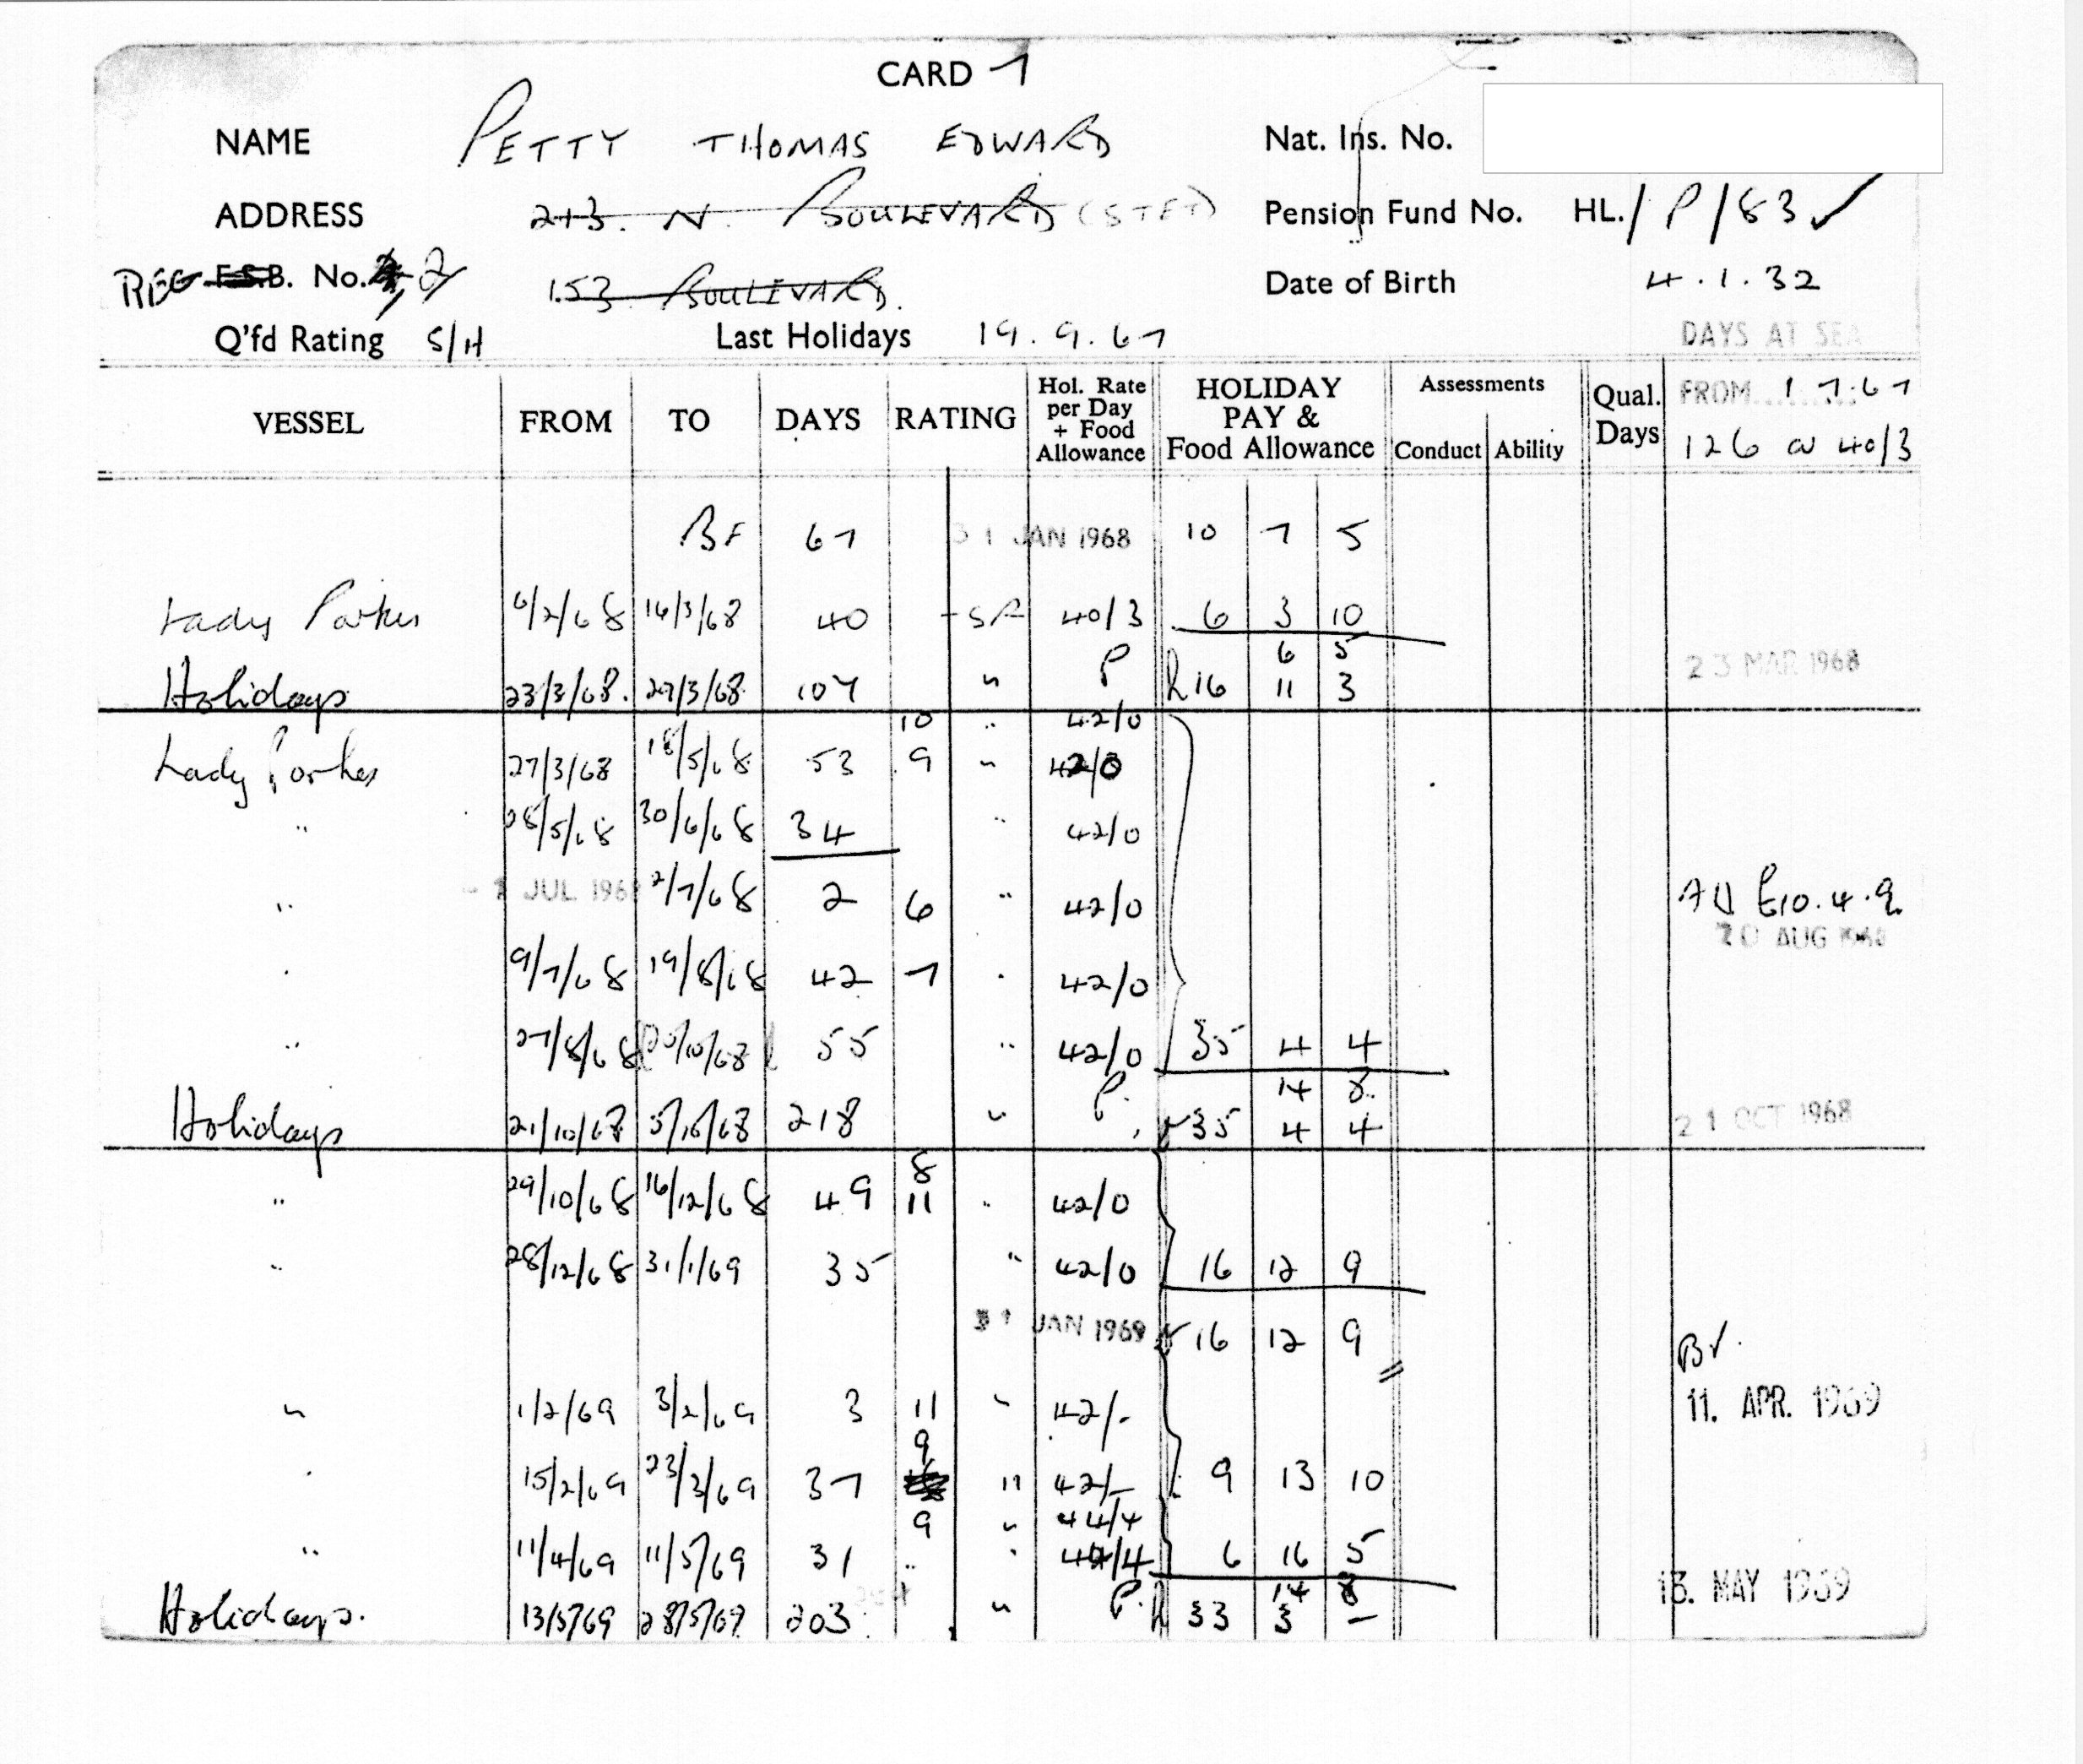 CARD 1
NAME PETTY THOMAS EDWARD Nat. Ins. No.
ADDRESS 213. N. BOULEVARD (STET) Pension Fund No. HL./P/83 ✓
REG F.S.B. No. 2
153 BOULEVARD. Date of Birth 4.1.32
Q'fd Rating S/H Last Holidays 19.9.67 DAYS AT SEA
VESSEL FROM TO DAYS RATING Hol. Rate per Day + Food Allowance HOLIDAY PAY & Food Allowance Assessments Conduct Ability Qual. Days FROM 1.7.67
126 @ 40/3
BF 67 31 JAN 1968 10 7 5
Lady Parkes 6/2/68 16/3/68 40 SP 40/3 6 3 10
6 5
Holidays 23/3/68. 27/3/68 107 " P 16 11 3 23 MAR 1968
10 " 42/0
Lady Parkes 27/3/68 18/5/68 53 9 " 42/0
" 28/5/68 30/6/68 34 " 42/0
" 1 JUL 1968 2/7/68 2 6 " 42/0 £10.4.9.
20 AUG 1968
" 9/7/68 19/8/68 42 7 " 42/0
" 27/8/68 20/10/68 55 " 42/0 35 4 4
14 8
Holidays 21/10/68 218 " P. 35 4 4 21 OCT 1968
8
" 29/10/68 16/12/68 49 11 " 42/0
" 28/12/68 31/1/69 35 " 42/0 16 12 9
31 JAN 1969 16 12 9
" 1/2/69 3/2/69 3 11 " 42/- 11. APR. 1969
9
" 15/2/69 23/3/69 37 " 42/- 9 13 10
9 " 44/4
" 11/4/69 11/5/69 31 " " 44/4 6 16 5
14 8
Holidays. 13/5/69 28/5/69 203 " P. 33 3 — 13. MAY 1969